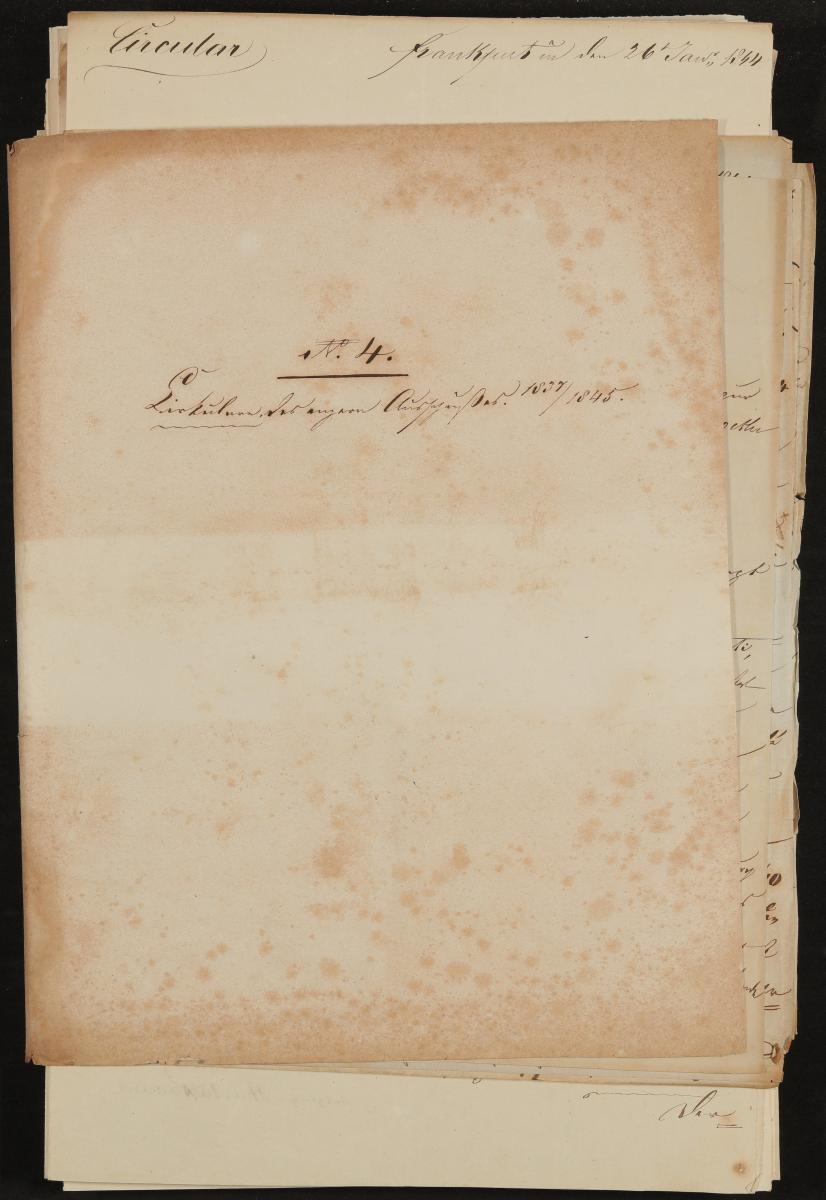 Circular
Frankfurt a/m den 26t Janr 1844
No. 4.
Cirkulare des engern Ausschusses. 1837/1845.
Der